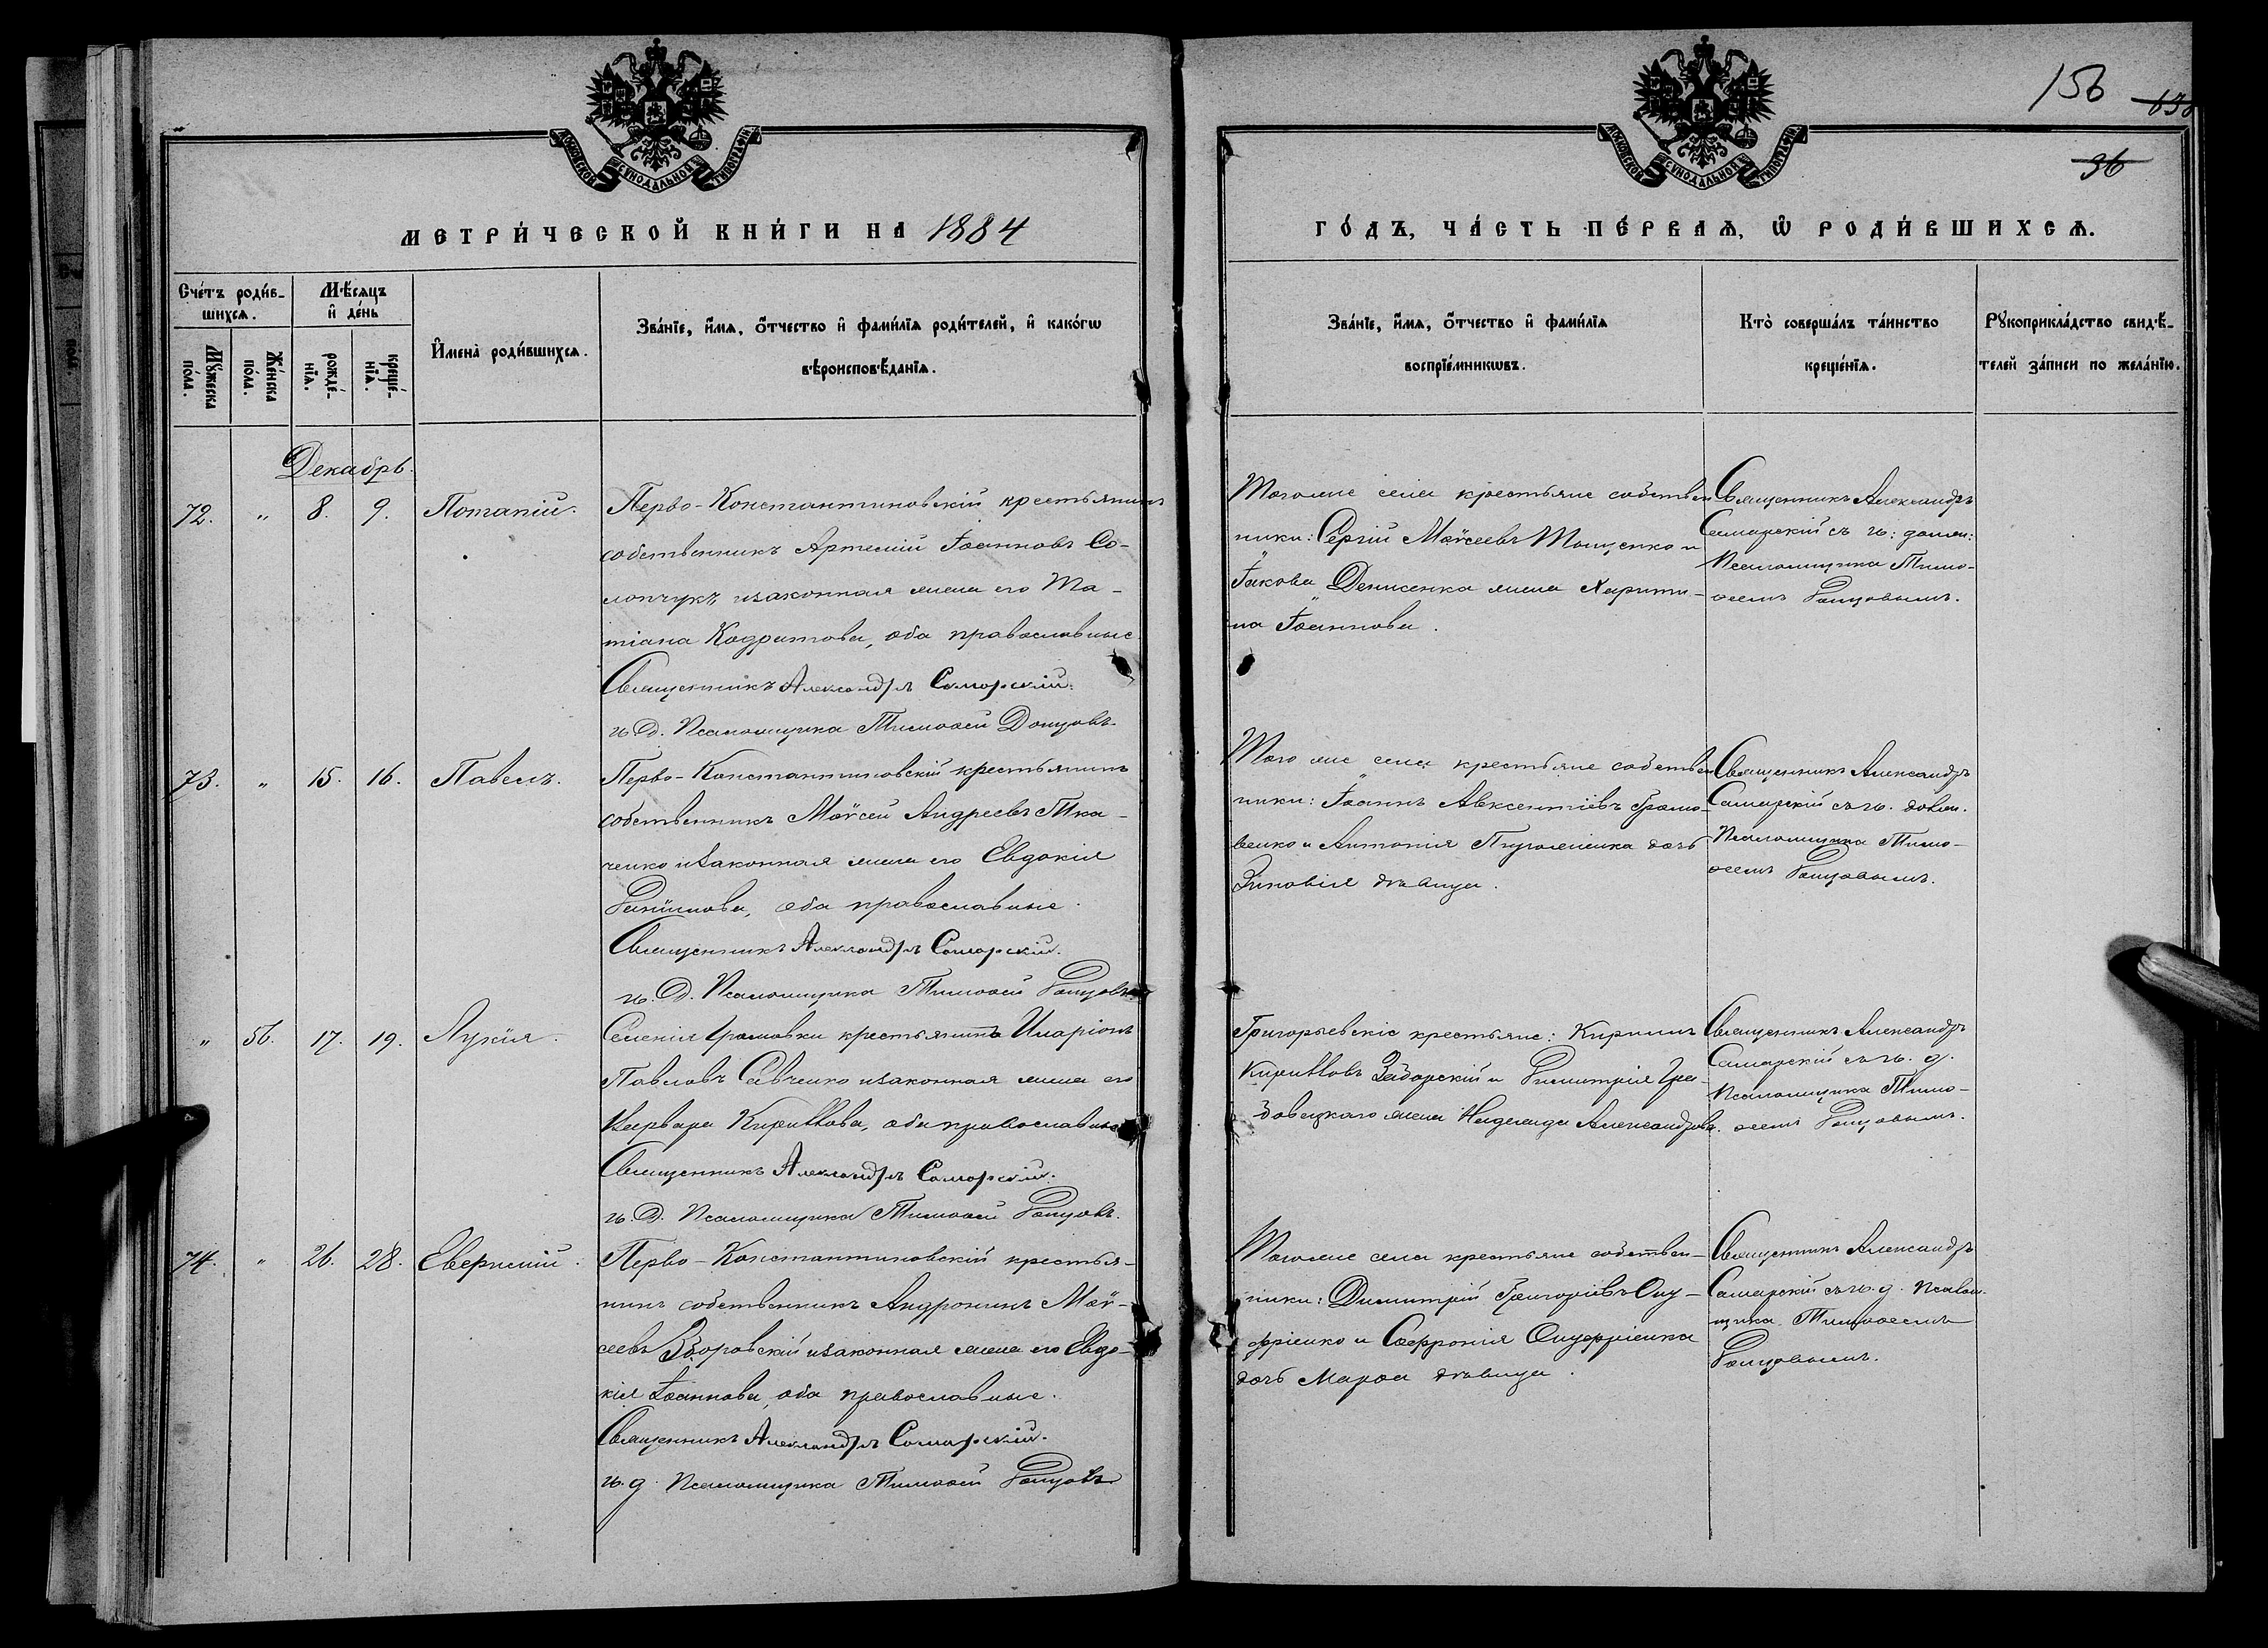 156 636
36
МОСКОВСКОЙ СѴНОДАЛЬНОЙ ТИПОГРАФІИ
МОСКОВСКОЙ СѴНОДАЛЬНОЙ ТИПОГРАФІИ
МЕТРИ́ЧЕСКОЙ КНИ́ГИ НА 1884
ГО́ДЪ, ЧА́СТЬ ПЕ́РВАѦ, Ѡ҆ РОДИ́ВШИХСѦ.
Сче́тъ роди́в-
шихсѧ.
Мꙋ́жеска
по́ла.
Же́нска
по́ла.
Мѣ́сѧцъ
и҆ де́нь
рожде́-
нїѧ.
креще́-
нїѧ.
И҆мена̀ роди́вшихсѧ.
Зва́нїе, и҆́мѧ, ѻ҆́тчество и҆ фами́лїѧ роди́телей, и҆ како́гѡ
вѣроисповѣ́данїѧ.
Зва́нїе, и҆́мѧ, ѻ҆́тчество и҆ фами́лїѧ
воспрїе́мникѡвъ.
Кто̀ соверша́лъ та́инство
креще́нїѧ.
Рꙋкоприкла́дство свидѣ́-
телей за́писи по жела́нїю.
Декабрь.
72. " 8. 9. Потапій.
Перво-Константиновскій крестьянинъ
собственникъ Артемій Іоанновъ Со-
лопчукъ изаконная жена его Та-
тіана Кодратова, оба православные
Священникъ Александръ Самарскій.
и. Д. Псаломщика Тимоѳей Донцовъ.
Тогоже села крестьяне собствен
ники: Сергій Моѵсеевъ Тищенко и
Іакова Денисенка жена Харити-
на Іоаннова.
Священникъ Александръ
Самарскій съ и: долж:
Псаломщика Тимо-
ѳеемъ Донцовымъ.
73. " 15. 16. Павелъ.
Перво-Константиновскій крестьянинъ
собственникъ Моѵсей Андреевъ Тка-
ченко изаконная жена его Евдокія
Даніилова, оба православные.
Священникъ Александръ Самарскій.
и. Д. Псаломщика Тимоѳей Донцовъ
Того же села крестьяне собствен
ники: Іоаннъ Авксентіевъ
и Антонія дочь
Зиновія дѣвица.
Священникъ Александръ
Самарскій съ и. долж.
Псаломщика Тимо-
ѳеемъ Донцовымъ.
" 56. 17. 19. Лукія.
Селенія Громовки крестьянинъ Иларіонъ
Павловъ Савченко изаконная жена его
Варвара Кириллова, оба православные
Священникъ Александръ Самарскій.
и. Д. Псаломщика Тимоѳей Донцовъ.
Григорьевскіе крестьяне: Кириллъ
Кирилловъ и Димитрія Гра-
довецкаго жена Надежда Александрова.
Священникъ Александръ
Самарскій съ и. д.
Псаломщика Тимо-
ѳеемъ Донцовымъ.
74. " 26. 28.
Перво-Константиновскій крестья-
нинъ собственникъ Андроникъ Моѵ-
сеевъ изаконная жена его Евдо-
кія Іоаннова, оба православные.
Священникъ Александръ Самарскій.
и. д. Псаломщика Тимоѳей Донцовъ
Тогоже села крестьяне собствен-
ники: Димитрій Григоріевъ Ону-
фріенко и Софронія Онуфріенка
дочь Марѳа дѣвица.
Священникъ Александръ
Самарскій съ и. д. Псалом-
щика Тимоѳеемъ
Донцовымъ.